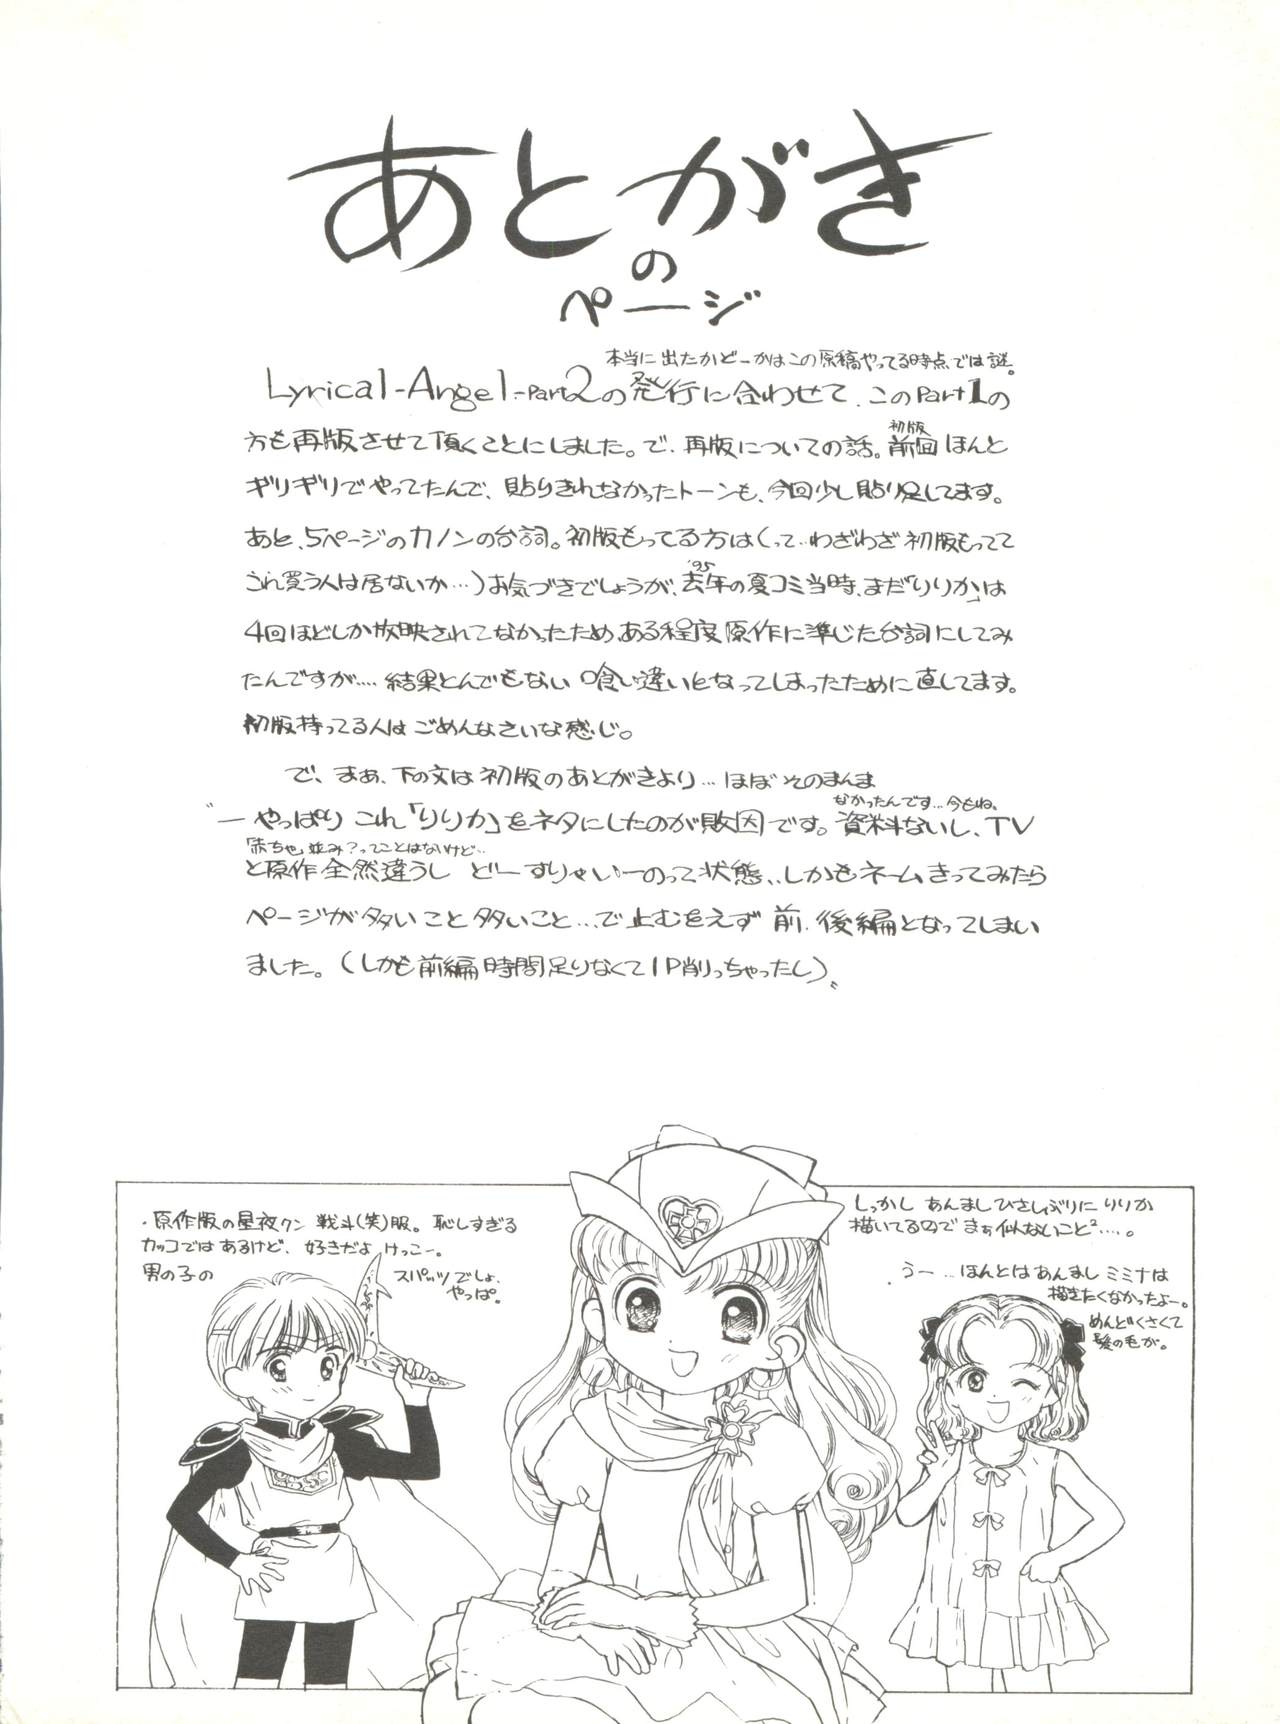 あとがき
の
ページ
本当に出たかどーかはこの原稿やってる時点では謎。
Lyrical-Angel-Part2の発行に合わせて、このPart1の
方も再版させて頂くことにしました。で、再版についての話。前回ほんと
初版
ギリギリでやってたんで、貼りきれなかったトーンも、今回少し貼り足してます。
あと、5ページのカノンの台詞。初版もってる方は(って…わざわざ初版もってて
これ買う人は居ないか…)お気づきでしょうが、去年の夏コミ当時、まだ「りりか」は
'95
4回ほどしか放映されてなかったため、ある程度原作に準じた台詞にしてみ
たんですが…‥結果とんでもない喰い違いとなってしまったために直してます。
初版持ってる人はごめんなさいな感じ。
で、まぁ、下の文は初版のあとがきより…ほぼそのまんま
なかったんです…今もね、
"―やっぱりこれ「りりか」をネタにしたのが敗因です。資料ないし、TV
「赤ちゃ」並み?ってことはないけど…
と原作全然違うし どーすりゃいーのって状態、、しかもネームきってみたら
ページが多いこと多いこと…で止むをえず前、後編となってしまい
ました。(しかも前編時間足りなくて1P削っちゃったし)〟
・原作版の星夜クン戦斗(笑)服。恥しすぎる
カッコではあるけど、好きだよけっこー。
男の子の
スパッツでしょ、
やっぱ。
しっかしあんましひさしぶりにりりか
描いてるのでまぁ似ないこと²…‥。
うー…ほんとはあんましミミナは
描きたくなかったよー。
めんどくさくて
髪の毛が。